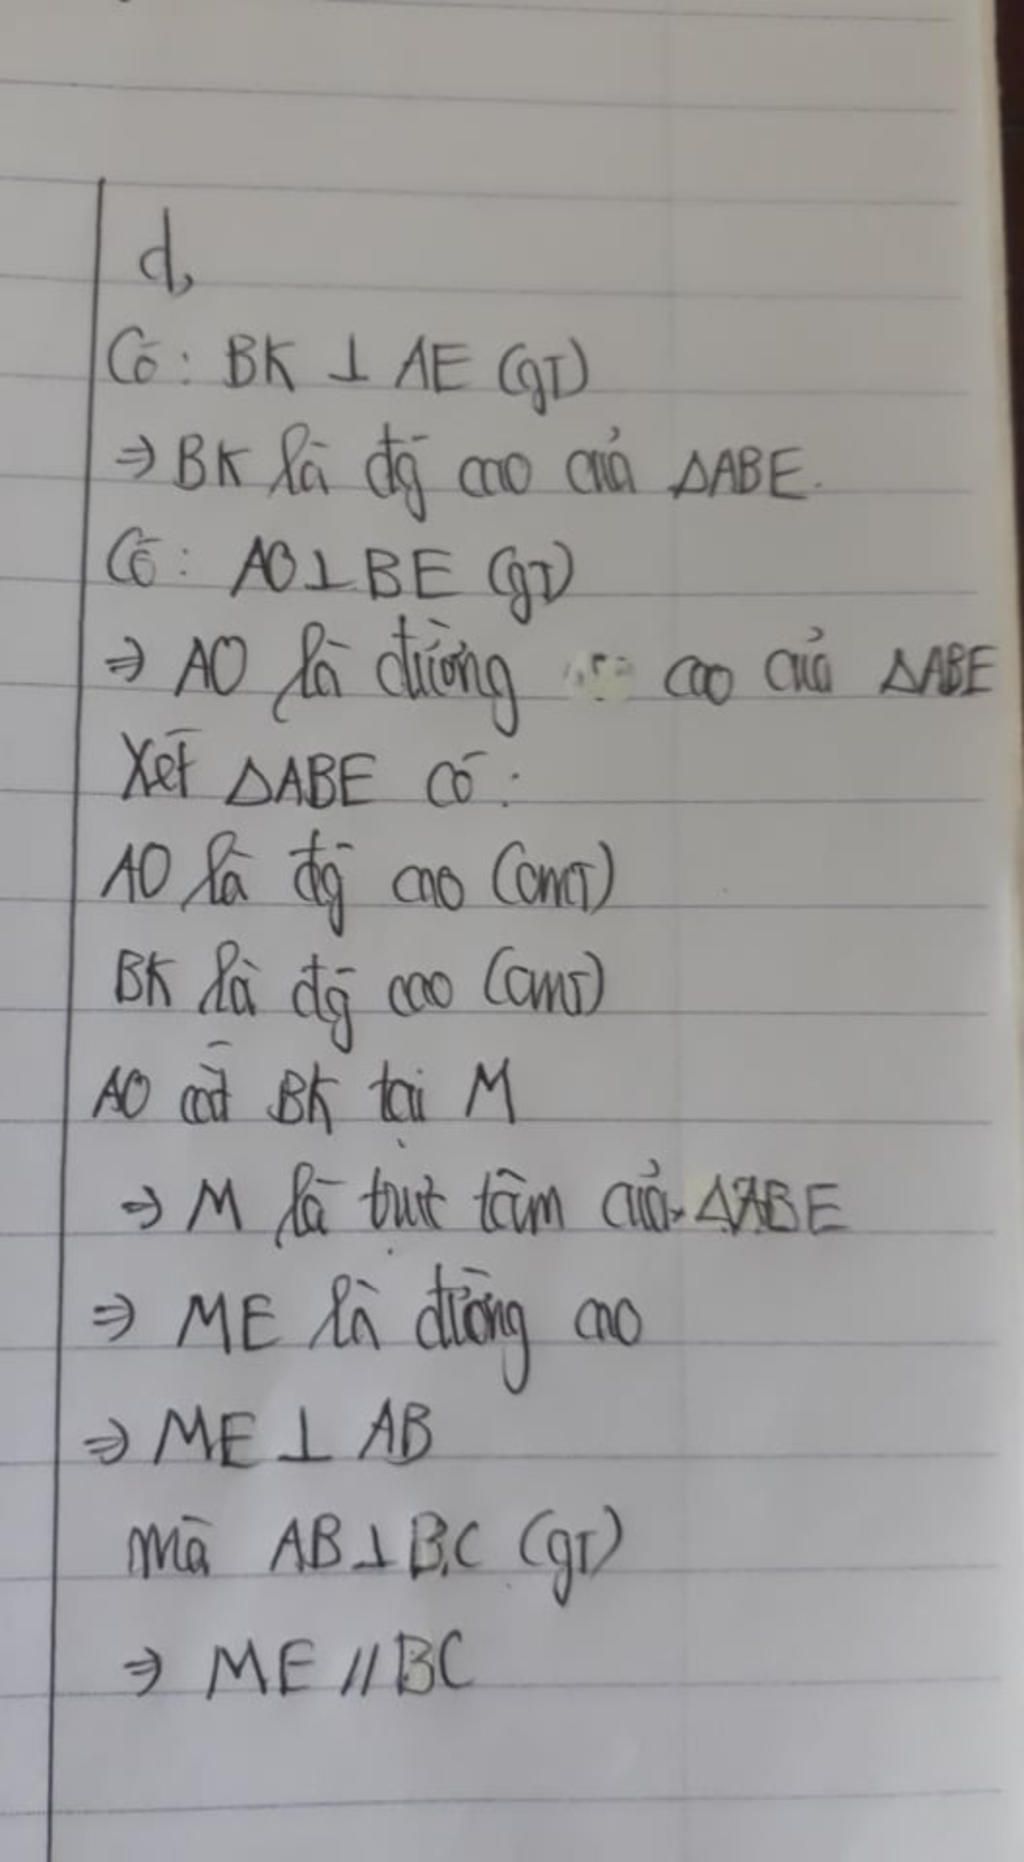 d,
Có: BK ⊥ AE (gT)
⇒ BK là đg cao của ΔABE.
Có: AO ⊥ BE (gT)
⇒ AO là đường cao của ΔABE
Xét ΔABE có:
AO là đg cao (cmT)
BK là đg cao (cmT)
AO cắt BK tại M
⇒ M là trực tâm của ΔABE
⇒ ME là đường cao
⇒ ME ⊥ AB
mà AB ⊥ BC (gT)
⇒ ME // BC